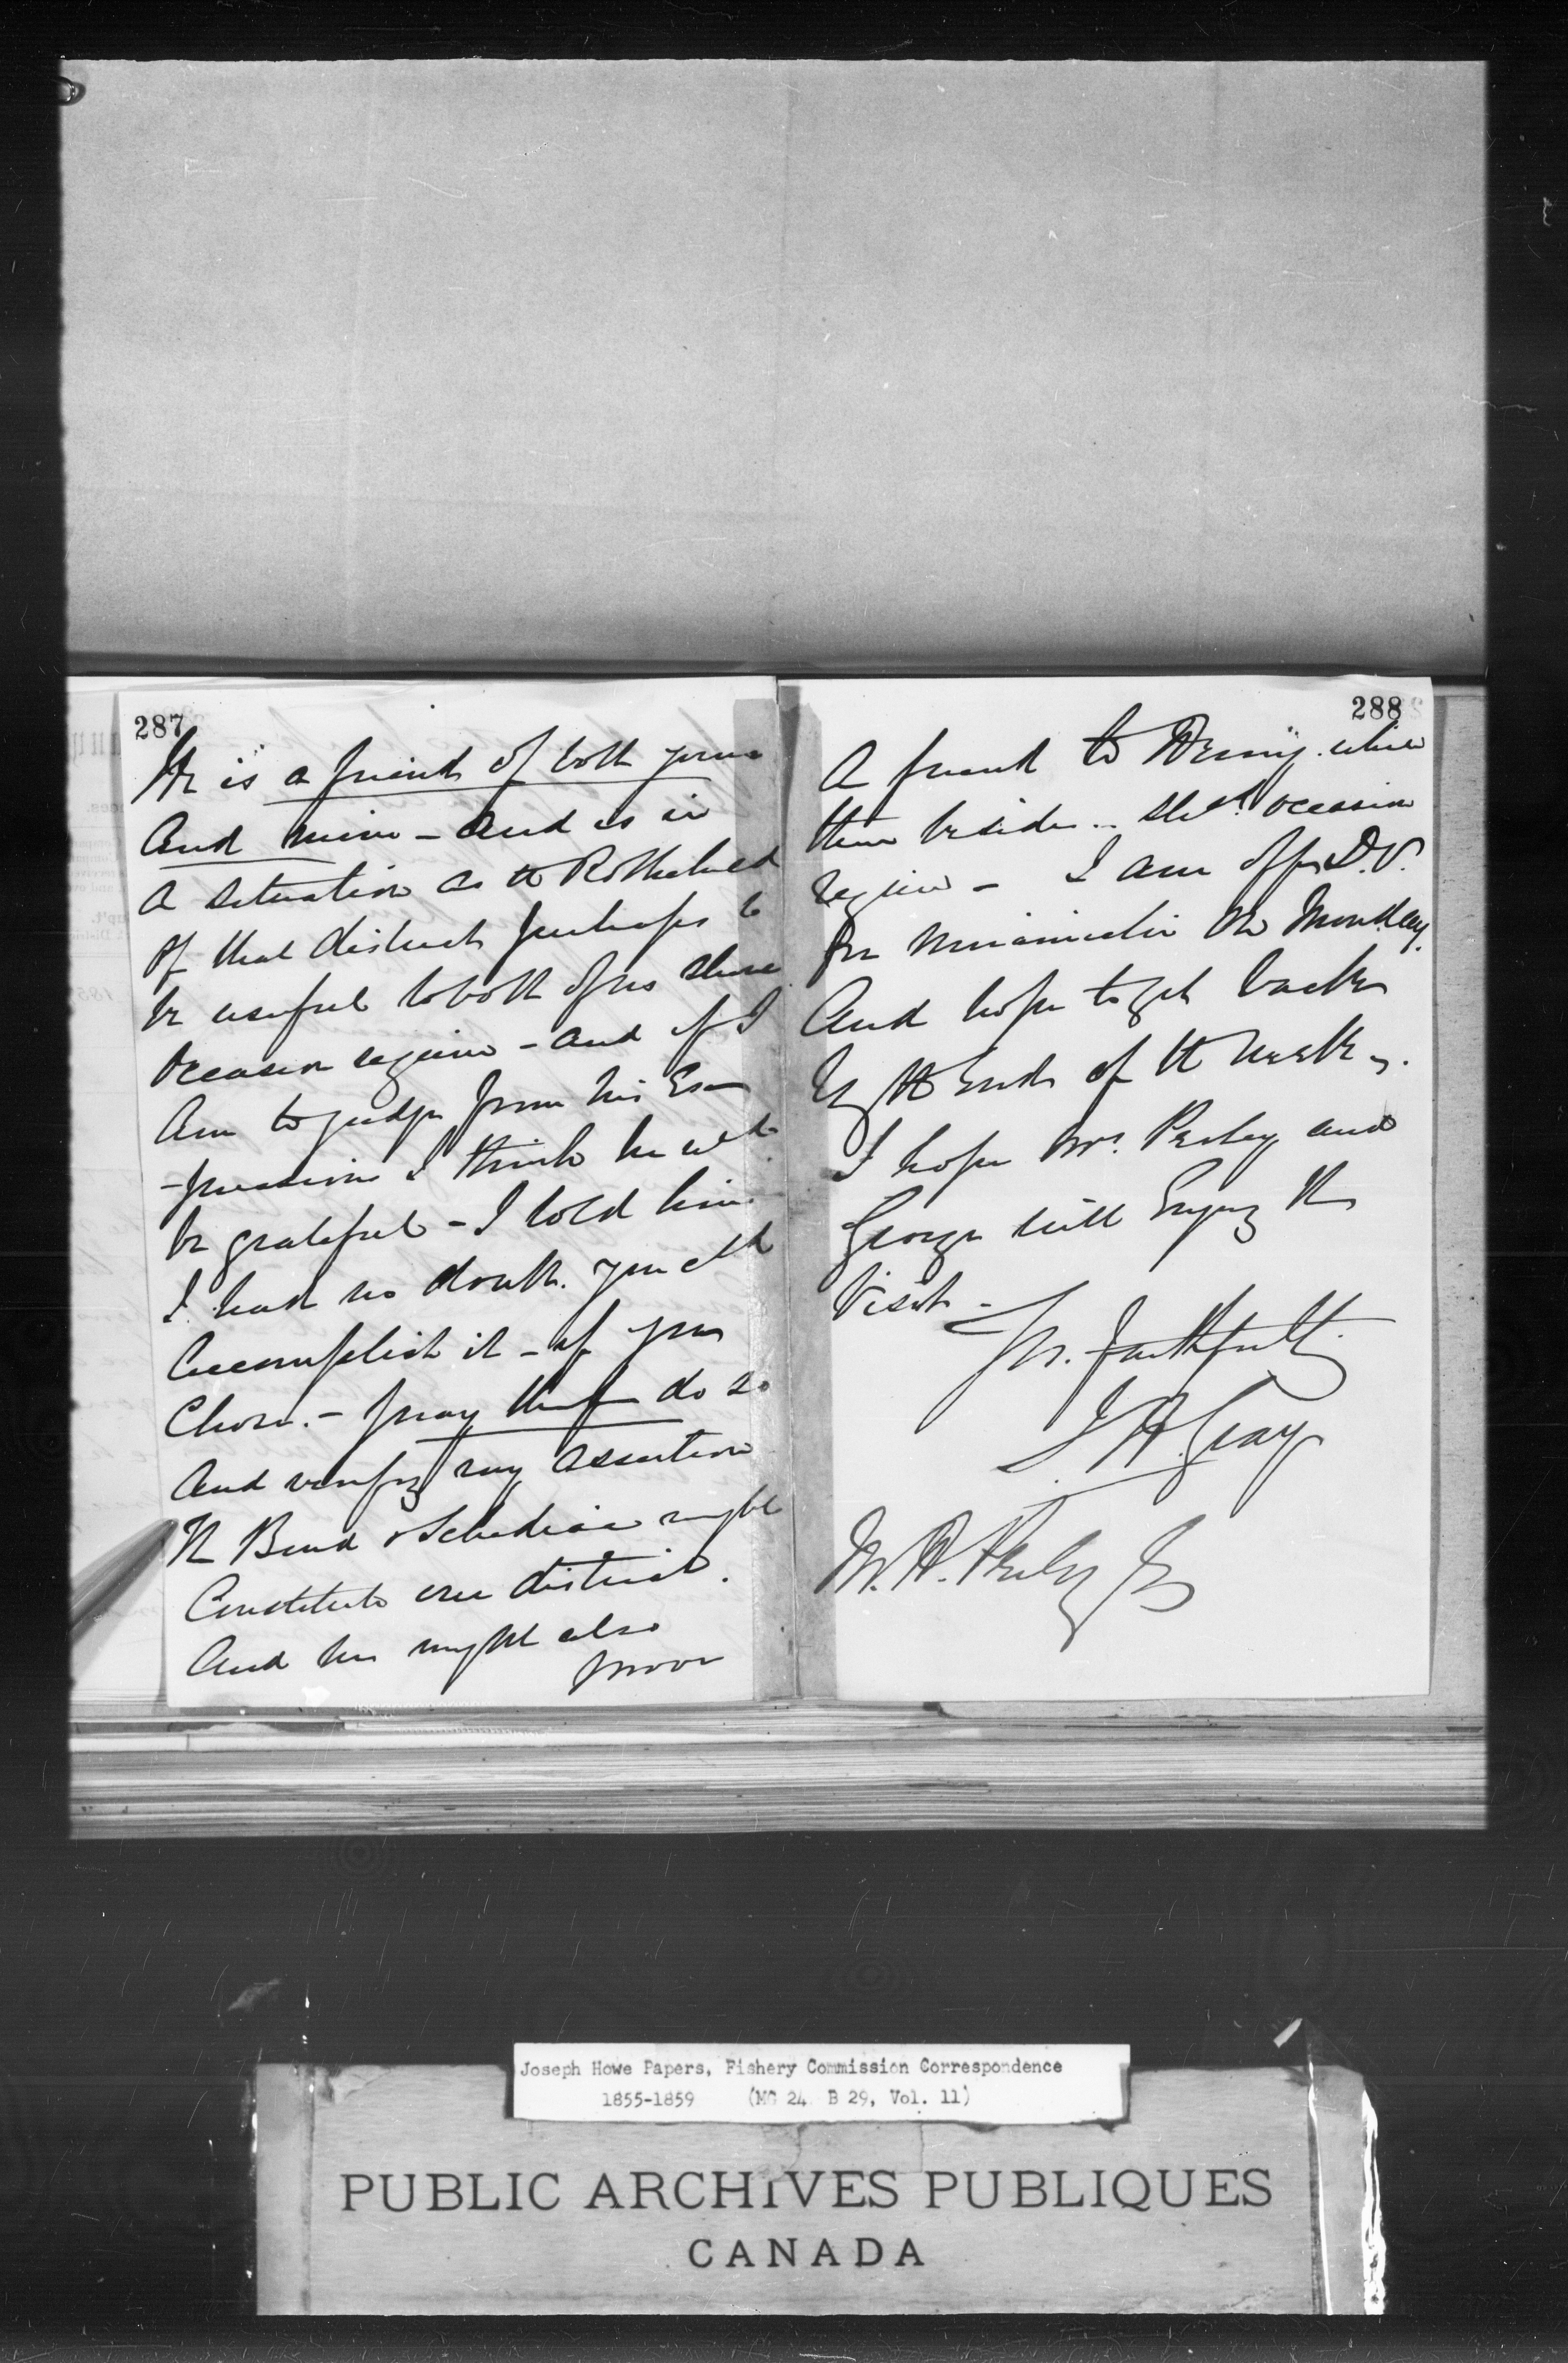 287
He is a friend of both yours
and mine - and is in
a situation as the Rothschild
of that district perhaps to
be useful to both of us should
occasion require - and if I
am to judge from his Ex
-pressions I think he wd
be grateful - I told him
I had no doubt you cld
accomplish it - if you
chose. - pray do so
and verify my assertion
The Bend & Schediac might
Constitute one district.
And he might also
prove
288
A friend to while
there beside .. shd occasion
require - I am off D.V.
for Miramichi on Monday.
And hope to get back
by the End of the week.
I hope Mrs. Perley and
George will Enjoy the
Visit -
Yrs. faithfully
J H Gray
M. H. Perley Esq
Joseph Howe Papers, Fishery Commission Correspondence
1855-1859 (MG 24 B 29, Vol. 11)
PUBLIC ARCHIVES PUBLIQUES
CANADA